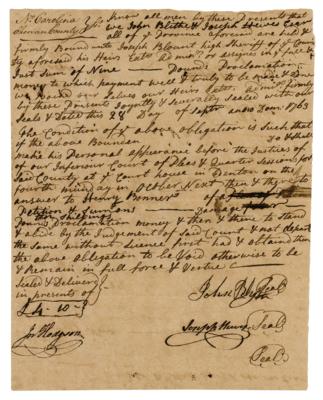 No Carolina
Chowan County Ss Know all men by these Presents that
we John Blithe & Joseph Hewes
all of ye Province aforesaid are held &
firmly Bound unto Joseph Blount high Sheriff of ye County
aforesaid his Heirs
Just Sum of Nine Pounds Proclamation
money to which payment well & truly to be made & done
we bind our Selves our Heirs
by these Presents Joyntly & Severally Sealed with our
Seals & dated this 28 Day of Septr anno Dom 1763
The Condition of ye above Obligation is Such that
if the above Bounden
make his Personal appearance before the Justices of
our Inferiour Court of Pleas & Quarter Sessions for
Said County at ye Court house in Edenton on the
fourth munday in October Next then & there to
answer to Henry Bonner
Petition & Summons
Pounds Proclamation money & then & there to stand
& abide by the Judgement of Said Court & not depart
the Same without Licence first had & obtained then
the above obligation to be Void otherwise to be
& Remain in full force & vertue
Sealed & Delivered
in presents of
£4-10-
John Blythe Seal
Joseph Hewes Seal
Jno Hodgson
Seal